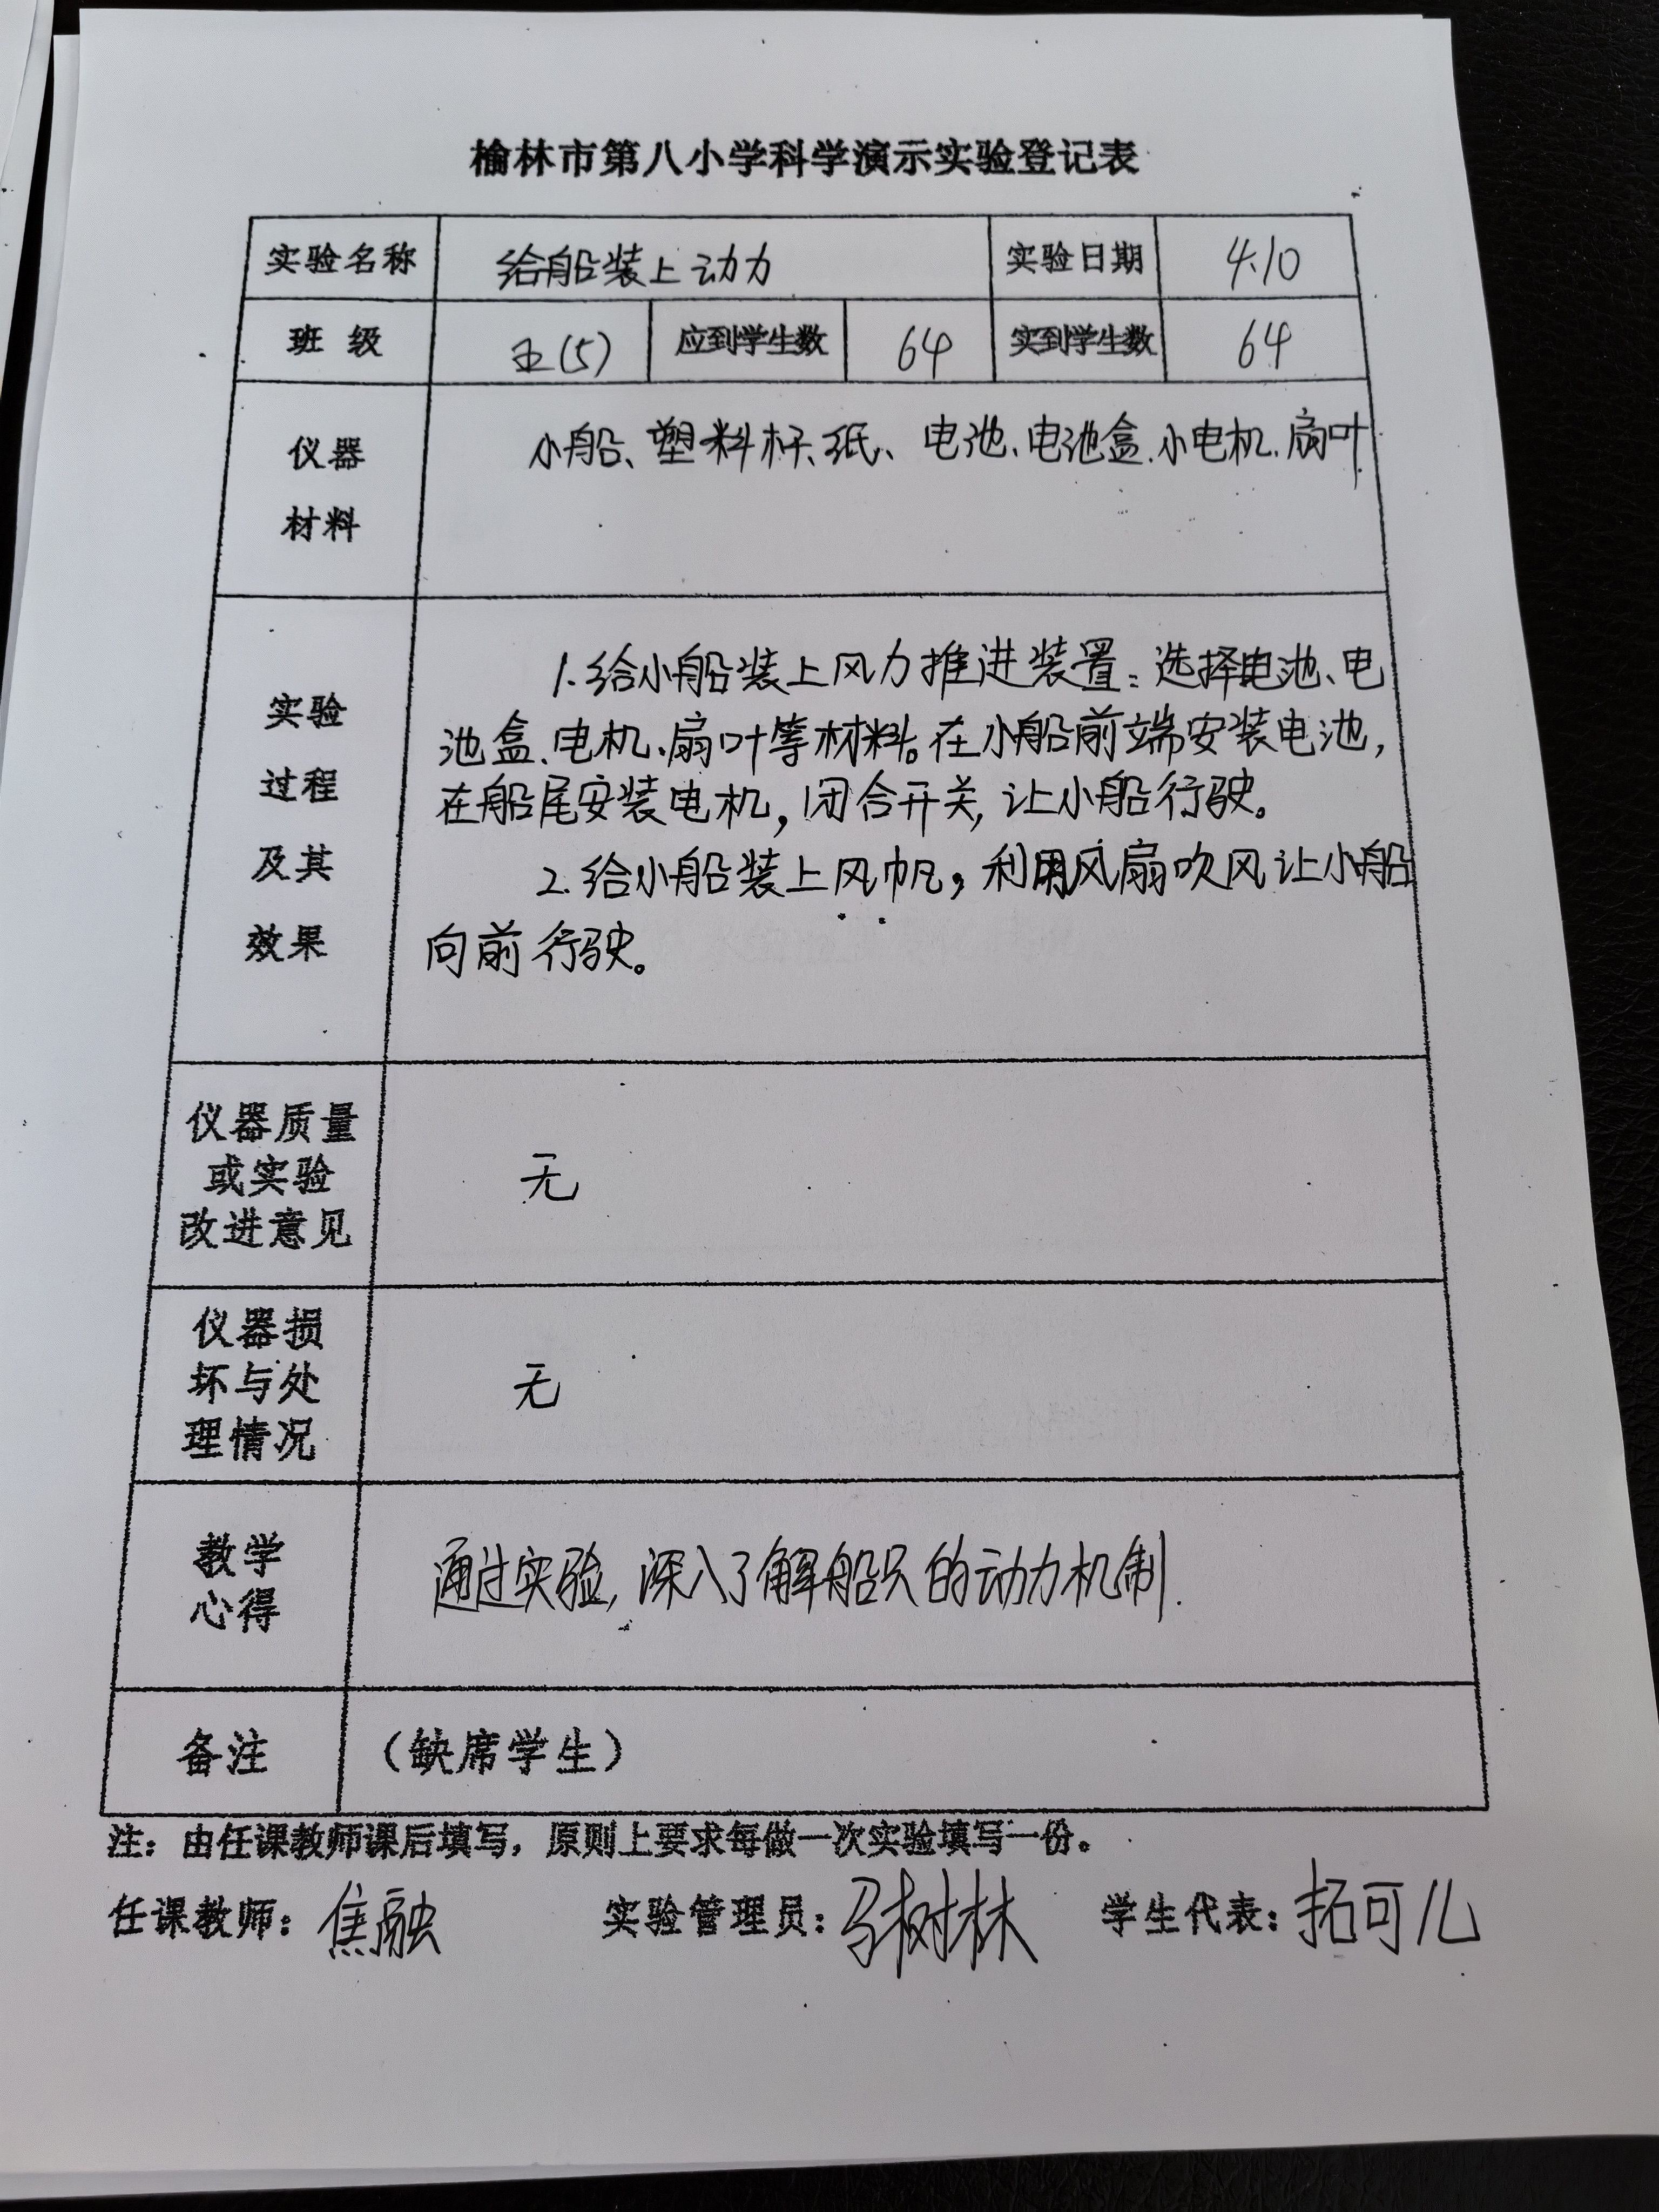 榆林市第八小学科学演示实验登记表
实验名称 给船装上动力 实验日期 4.10
班 级 五(5) 应到学生数 64 实到学生数 64
仪器 小船、塑料杯、纸、电池、电池盒、小电机、扇叶
材料
1.给小船装上风力推进装置：选择电池、电
实验
池盒、电机、扇叶等材料。在小船前端安装电池，
过程
在船尾安装电机，闭合开关，让小船行驶。
及其 2.给小船装上风帆，利用风扇吹风让小船
效果 向前行驶。
仪器质量
或实验 无
改进意见
仪器损
坏与处 无
理情况
教学 通过实验，深入了解船只的动力机制.
心得
备注 （缺席学生）
注：由任课教师课后填写，原则上要求每做一次实验填写一份。
任课教师：焦融 实验管理员：马树林 学生代表：拓可儿